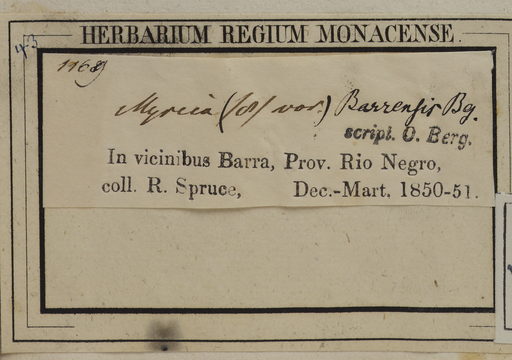 43
HERBARIUM REGIUM MONACENSE.
1169
Myrcia Barrensis Bg.
scripl. O. Berg.
In vicinibus Barra, Prov. Rio Negro,
coll. R. Spruce, Dec.-Mart. 1850-51.